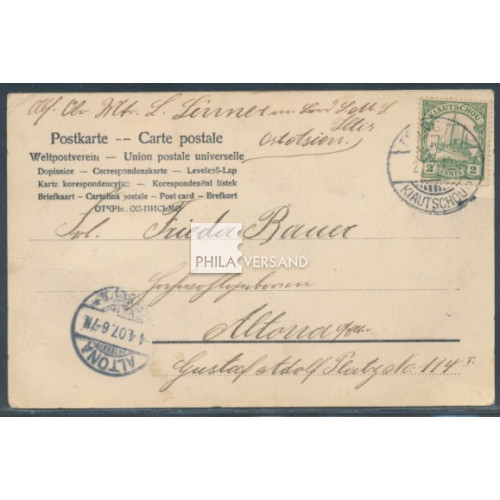 Abs. Ob. Mtr. L. Sinner
Iltis
Ostasien.
KIAUTSCHOU
2 CENTS 2
KIAUTSCHOU
Postkarte -- Carte postale
Weltpostverein — Union postale universelle
Dopisnice — Correspondenzkarte — Levelező-Lap
Karta korespondencyjna — Korespondenční lístek
Briefkaart — Cartolina postale — Post card — Brefkort
ОТКРЫ
Frl. Frieda Bauer
PHILA VERSAND
Hochwohlgeboren
Altona
Gustaf Adolf Platz No. 114 I.
ALTONA
4.07. 6-7N.